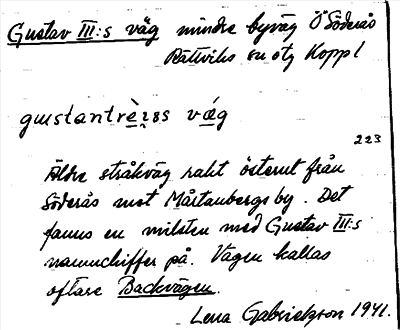 Gustav III:s väg mindre byväg Ö Söderås
Rättviks sn otg Koppl
gustantrè̱ɪss væ̱g
223
Äldre stråkväg rakt österut från
Söderås mot Mårtanbergs by. Det
fanns en milsten med Gustav III:s
namnchiffer på. Vägen kallas
oftare Backvägen.
Lena Gabrielsson 1941.